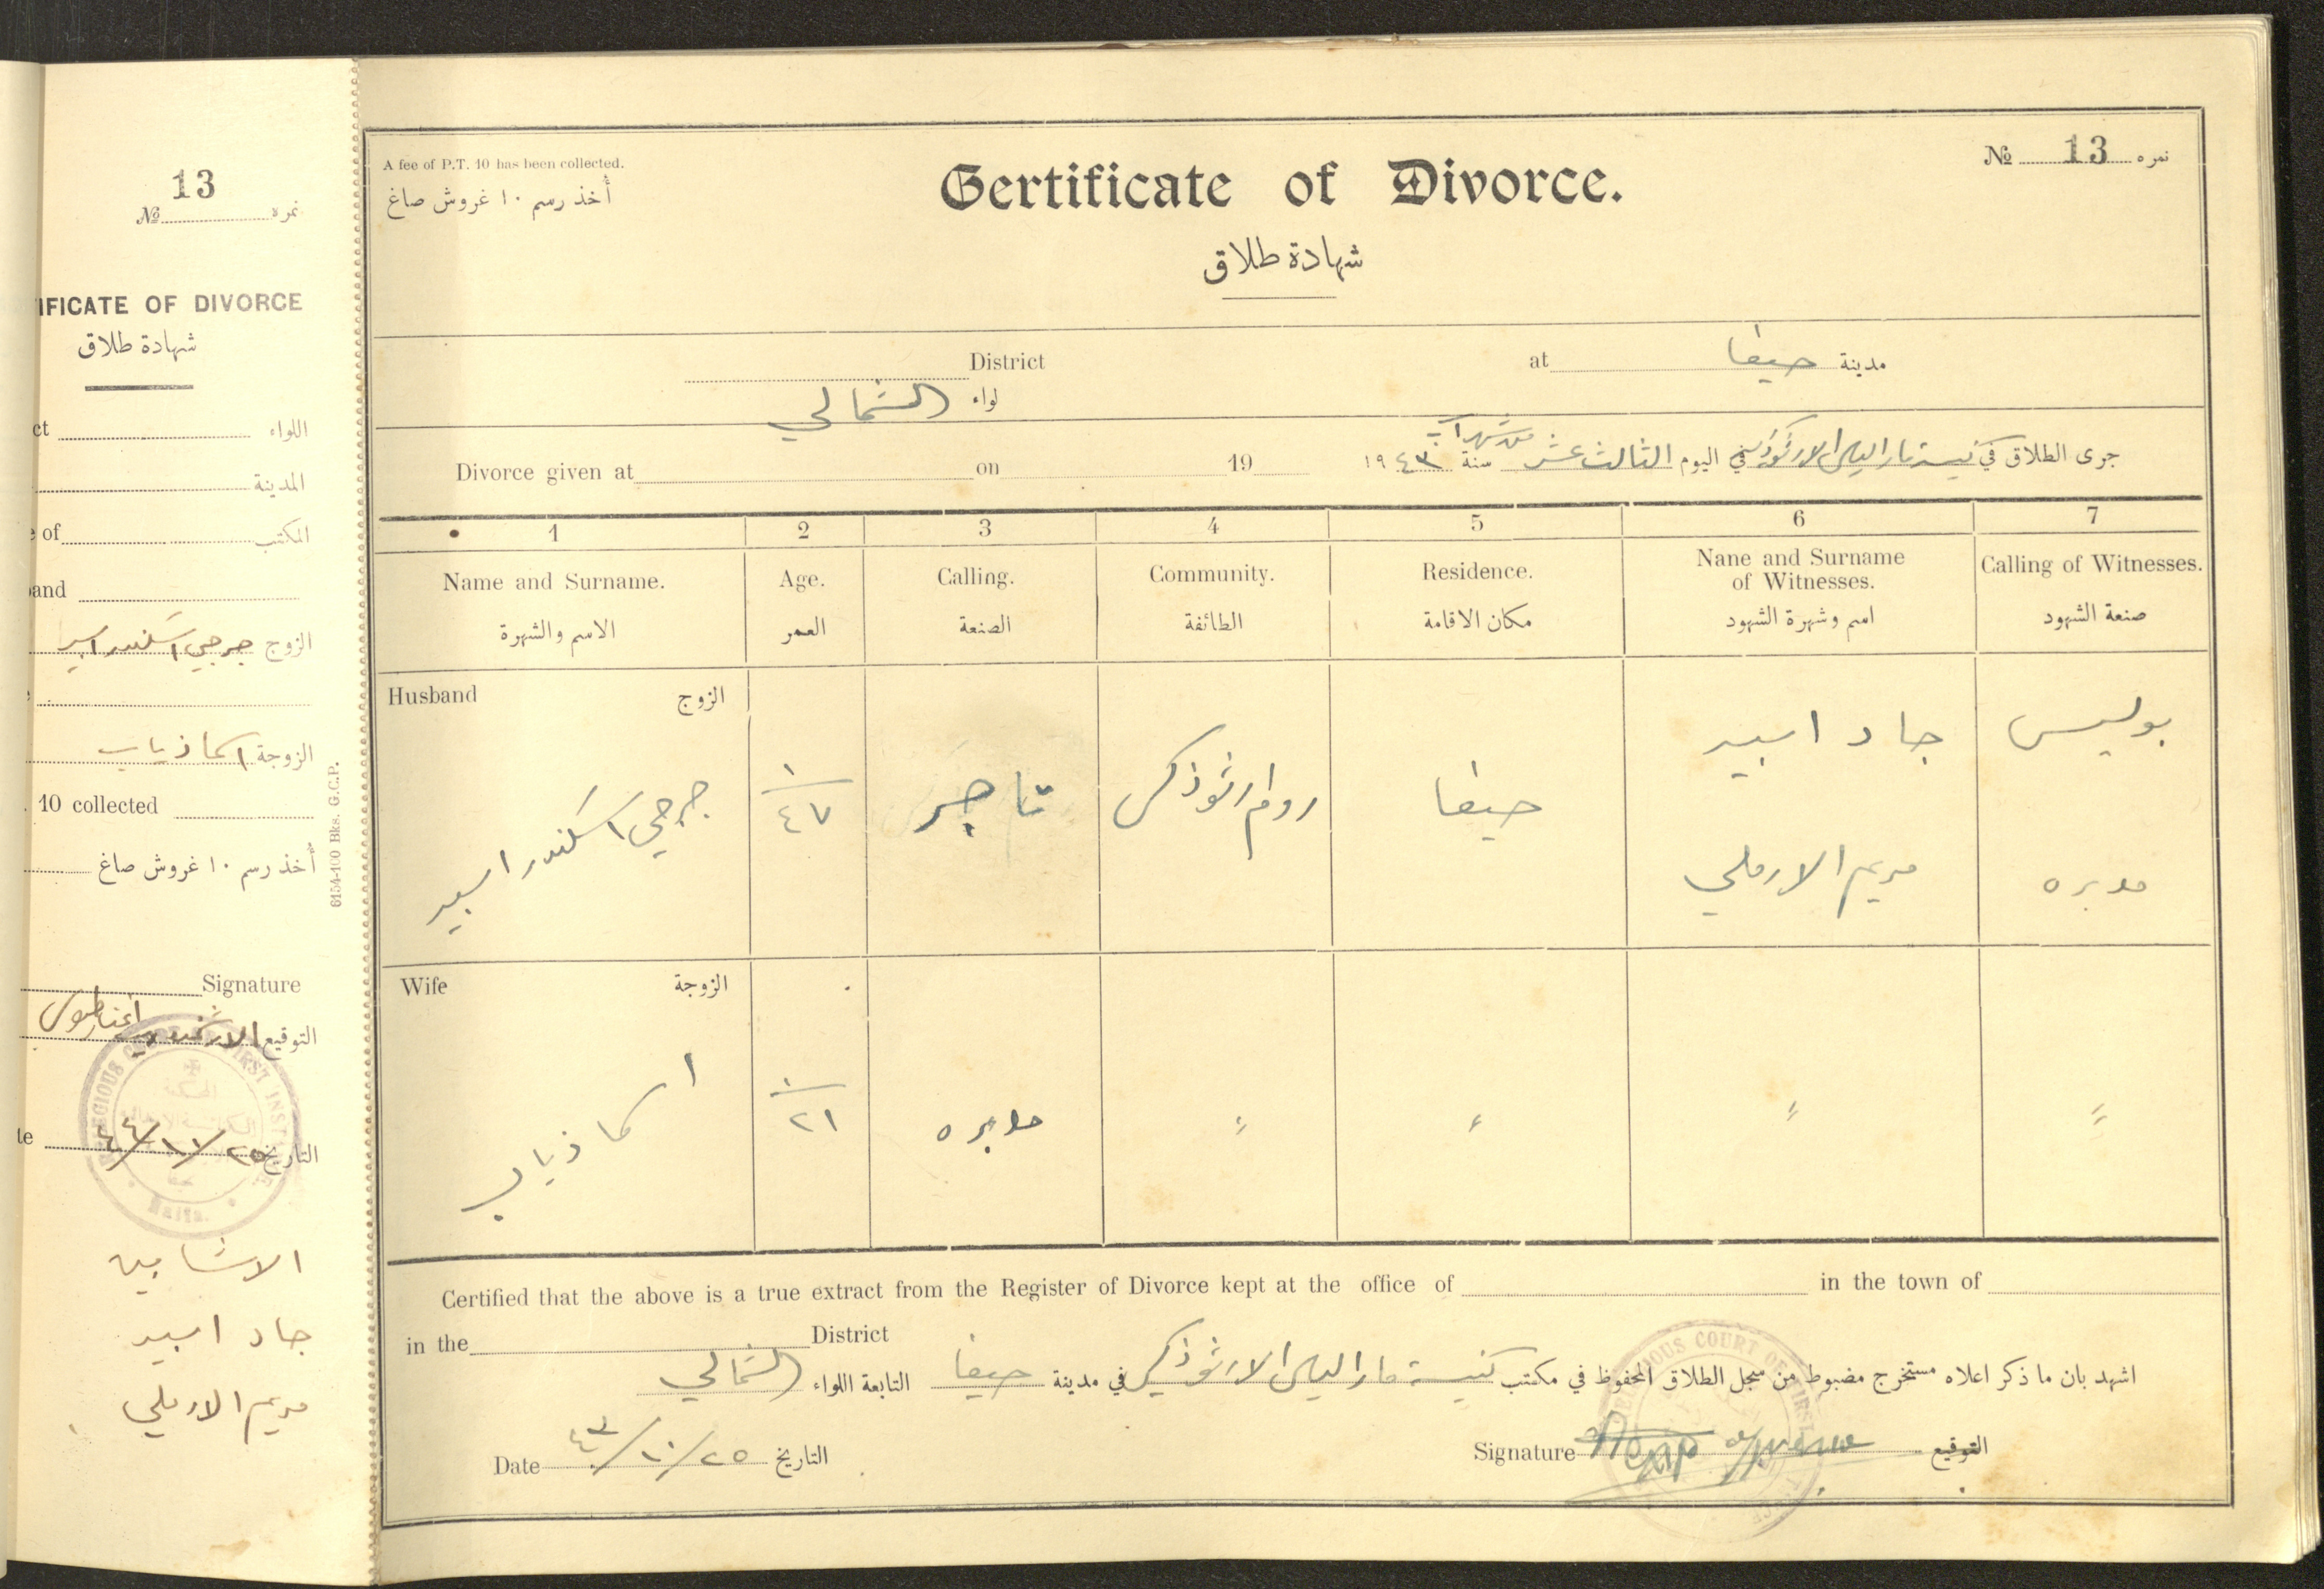 13
№ نمره
IFICATE OF DIVORCE
شهادة طلاق
ct اللواء
المدينة
e of المكتب
and
الزوج جرجي اسكندر اسبير
الزوجة اسما ذياب
. 10 collected
أخذ رسم ١٠ غروش صاغ
Signature
التوقيع
te التاريخ
RELIGIOUS COURT OF FIRST INST
Haifa.
جاد اسبير
مريم الارملي
6154-100 Bks. G.C.P.
A fee of P.T. 10 has been collected.
أخذ رسم ١٠ غروش صاغ
Certificate of Divorce.
شهادة طلاق
№ 13 نمره
District at مدينة حيفا
لواء الشمالي
Divorce given at on 19
جرى الطلاق في كنيسة مار الياس الارثوذكسي في اليوم الثالث عشر من شهر آب سنة ١٩٤٣
1 2 3 4 5 6 7
Name and Surname. Age. Calling. Community. Residence. Nane and Surname of Witnesses. Calling of Witnesses.
الاسم والشهرة العمر الصنعة الطائفة مكان الاقامة اسم وشهرة الشهود صنعة الشهود
Husband الزوج
جرجي اسكندر اسبير ٤٧ تاجر روم ارثوذكس حيفا جاد اسبير بوليس
مريم الارملي مدبره
Wife الزوجة
اسما ذياب ٢١ مدبره
Certified that the above is a true extract from the Register of Divorce kept at the office of in the town of
in the District
اشهد بان ما ذكر اعلاه مستخرج مضبوط من سجل الطلاق المحفوظ في مكتب كنيسة مار الياس الارثوذكسي في مدينة حيفا التابعة اللواء الشمالي
Date ٢٥/١٠/٤٣ التاريخ
Signature التوقيع